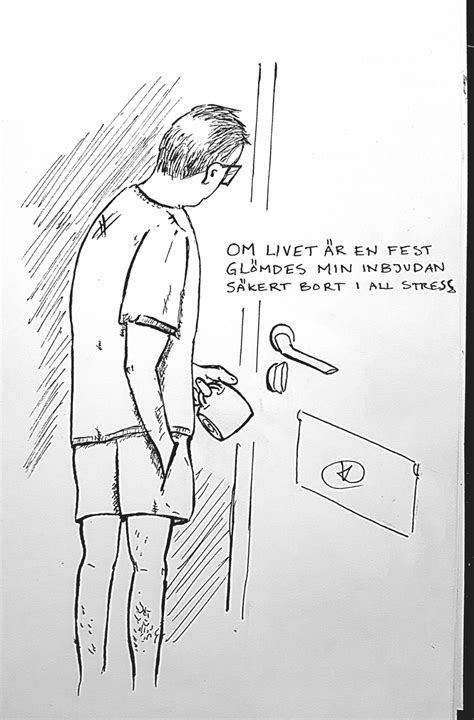 OM LIVET ÄR EN FEST
GLÖMDES MIN INBJUDAN
SÄKERT BORT I ALL STRESS